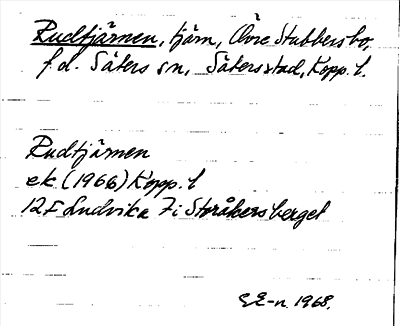 Rudtjärnen, tjärn, Övre Stubbersbo,
f.d. Säters sn, Säters stad, Kopp. l.
Rudtjärnen
ek. (1966) Kopp. l
12F Ludvika 7i Storåkersberget
SE-n. 1968.